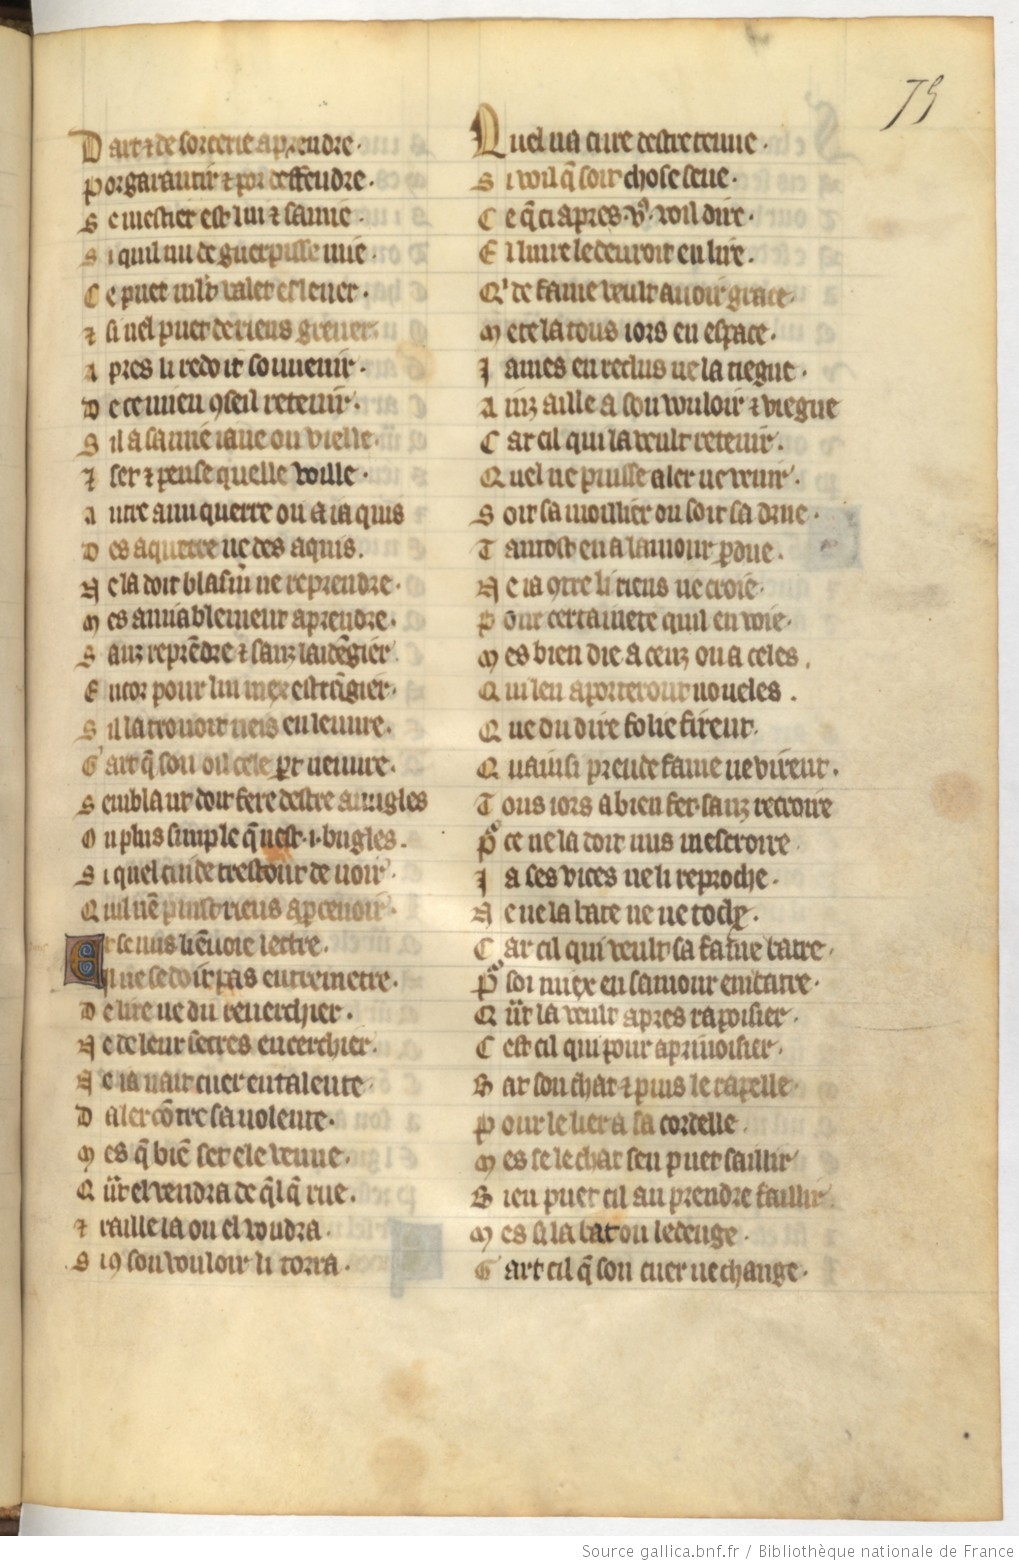 75
D art ⁊ de sorcerie aprendre·
P or garantir ⁊ por deffendre·
S e mestier est lui ⁊ samie·
S i quil nu de guerpisse mie·
C e puet mlt valer eslever·
⁊ si nel puet de riens grever·
A pres li redoit souvenir·
D e ce mien ꝯseil retenir·
S il a samie iane ou vielle·
⁊ set ⁊ pense quelle voille·
A utre ami querre ou a ia quis
D es aquerre ne des aquis.
N e la doit blasm̄ ne reprendre·
M es amiablement aprendre·
S anz rep̄ndre ⁊ sanz laid̄egier
E ncor pour lui mex estrāgier·
S il la trouoit neis en leuure·
G art q̄ son oil cele p̲t neuure·
S emblant doit fere destre auugles
O u plus simple q̄ nest ·i· bugles.
S i quel cuide trestout de uoir·
Q uil nē puist riens ap̲cevoir·
E t se nus li ēuoie lettre·
I l ne se doit pas entremetre·
D e lire ne du reuerchier·
N e de leur secres encerchier·
N e ia nait cuer entalente·
D aler cōtre sa uolente·
M es q̄ biē set ele venue·
Q ūt el vendra de q̄lq̄ rue·
⁊ raille la ou el voudra·
S i ꝯ son vouloir li torra·
Q uel na cure destre tenue·
S i voil q̄ soit chose seue·
C e q̄ ci apres ·v⁹· voil dire·
E n liure le deuroit en lire·
Q' de fame veult auoir grace·
M ete la tous iors en espace·
J ames en reclus ne la tiegne·
A inz aille a son vouloir ⁊ viegne
C ar cil qui la veult retenir·
Q uel ne puisse aler ne venir·
S oit sa moillier ou soit sa drue·
T antost en a lamour p̲due.
N e ia ꝯtre li riens ne croie·
P our certainete quil en voie·
M es bien die a ceuz ou a celes.
Q ui len aporteront noueles.
Q ue du dire folie firent·
Q uainsi preude fame ne virent·
T ous iors a bien fet sanz recroire
P̄ ce ne la doit nus mescroire
J a ses vices ne li reproche·
N e ne la bate ne ne toch̲e·
C ar cil qui veult sa fame batre·
P̄ soi miex en samour embatre·
Q ūt la veult apres rapoisier·
C est cil qui pour aprivoisier·
B at son chat ⁊ puis le rapelle·
P our le lier a sa cordelle·
M es se le chat sen puet saillir
B ien puet cil au prendre faillir·
M es sil la bat ou ledenge·
G art cil q̄ son cuer ne change·
Source gallica.bnf.fr / Bibliothèque nationale de France